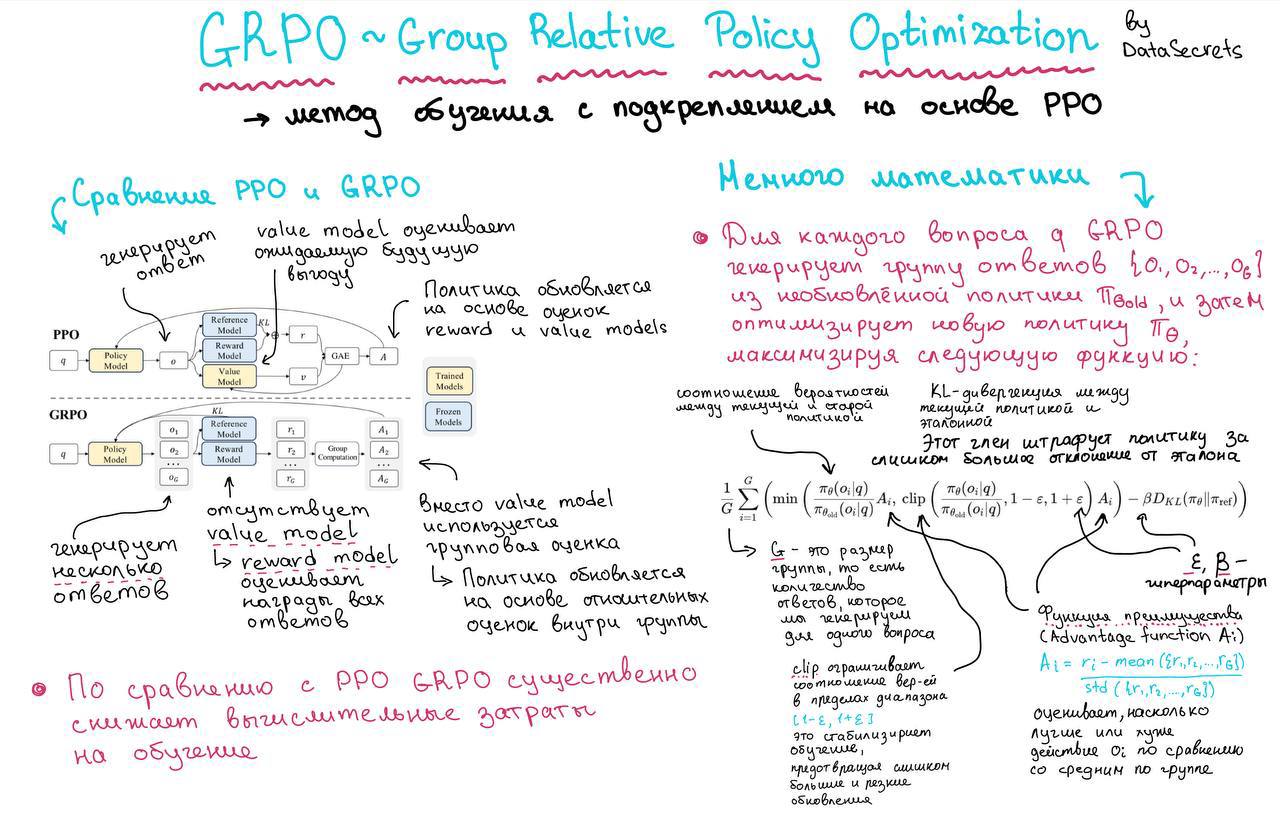 GRPO ~ Group Relative Policy Optimization
by
DataSecrets
→ метод обучения с подкреплением на основе PPO
Сравнение PPO и GRPO
генерирует
ответ
value model оценивает
ожидаемую будущую
выгоду
Политика обновляется
на основе оценок
reward и value models
PPO
q
Policy
Model
o
Reference
Model
KL
⊕
Reward
Model
Value
Model
r
v
GAE
A
Trained
Models
Frozen
Models
GRPO
q
Policy
Model
o₁
o₂
...
o_G
KL
Reference
Model
Reward
Model
r₁
r₂
...
r_G
Group
Computation
A₁
A₂
...
A_G
генерирует
несколько
ответов
отсутствует
value model
↳ reward model
оценивает
награды всех
ответов
Вместо value model
используется
групповая оценка
↳ Политика обновляется
на основе относительных
оценок внутри группы
• По сравнению с PPO GRPO существенно
снижает вычислительные затраты
на обучение
Немного математики
• Для каждого вопроса q GRPO
генерирует группу ответов {O₁, O₂, ..., O_G}
из необновлённой политики π_θold, и затем
оптимизирует новую политику π_θ,
максимизируя следующую функцию:
соотношение вероятностей
между текущей и старой
политикой
KL-дивергенция между
текущей политикой и
эталонной
Этот член штрафует политику за
слишком большое отклонение от эталона
1/G ∑_{i=1}^{G} ( min ( π_θ(o_i|q) / π_θold(o_i|q) A_i, clip ( π_θ(o_i|q) / π_θold(o_i|q), 1 − ε, 1 + ε ) A_i ) − βD_KL(π_θ‖π_ref) )
G - это размер
группы, то есть
количество
ответов, которое
мы генерируем
для одного вопроса
clip ограничивает
соотношение вер-ей
в пределах диапазона
[1-ε, 1+ε]
это стабилизирует
обучение,
предотвращая слишком
большие и резкие
обновления
ε, β -
гиперпараметры
Функция преимущества
(Advantage function Ai)
Ai = ri - mean({r₁,r₂,...,r_G}) / std({r₁,r₂,...,r_G})
оценивает, насколько
лучше или хуже
действие Oi по сравнению
со средним по группе